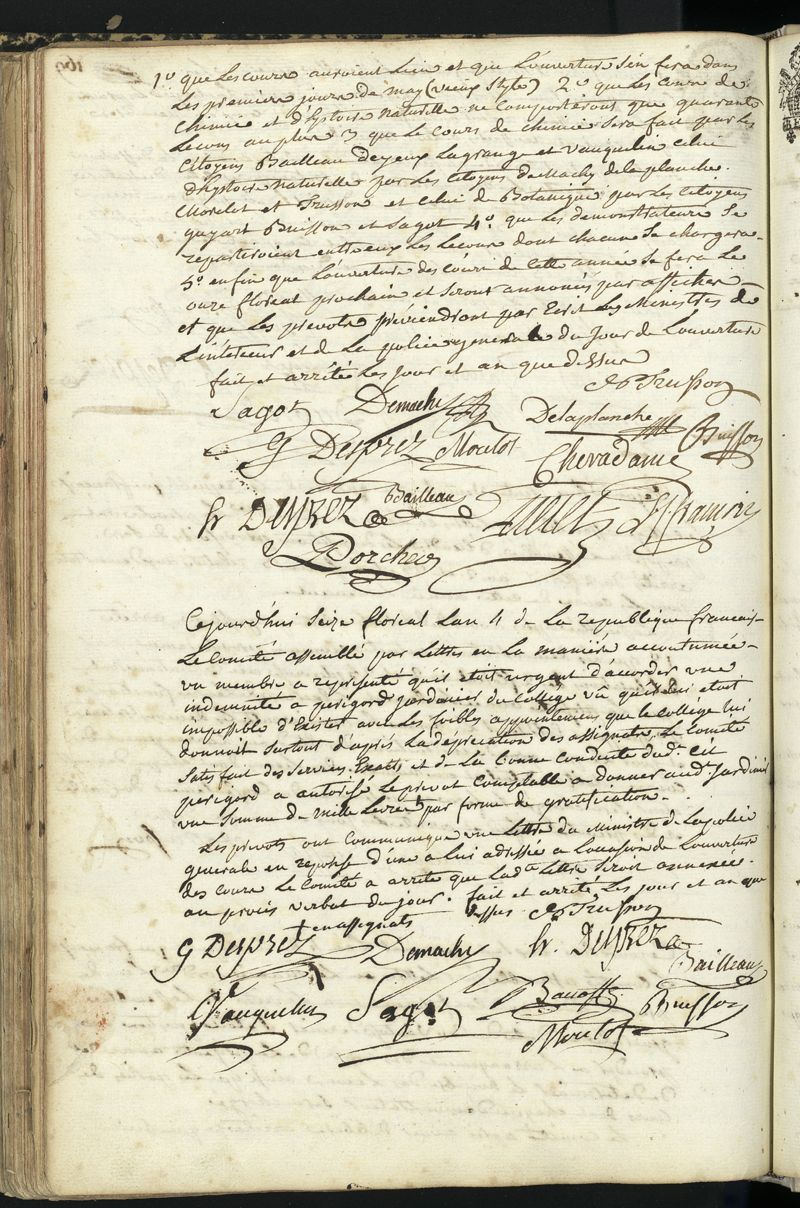 1º que Les cours auroient Lieu et que Louverture Sen fera dans
Les premiers jours de may (vieux Style) 2º que Les Cours de
Chimie et d'hystoire Naturelle ne Comporteront que quarante
Lecons au plus 3 que Le Cours de chimie Sera fait par Les
Citoyens Bailleau Deyeux Lagrange et Vauquelin Celui
d'hystoire Naturelle par Les Citoyens deMachy delaplanche.
Morelot et Trusson et Celui de Botanique par Les Citoyens
guyart Buisson et Sagot 4º. que Les demonstrateurs Se
repartiroient entre eux Les Lecons dont chacun Se chargera
5º enfin que Louverture des cours de Cette année Se fera Le
onze floreal prochain et Seront annoncés par affiches
et que Les prevots préviendront par Ecrit Les Ministres de
L'intérieur et de La police generale du jour de Louverture
fait et arrêté Les jour et an que dessus
Trusson
Sagot Demachy Delaplanche Buisson
G Deyrez Morelot Chevadame
h. Deyrez Bailleau
Dorcheo
Cejourd'hui Seize floreal Lan 4 de La republique francais
Le Comité assemblé par Lettres en La manière accoutumée
un membre a représenté qu'il etoit urgent d'accorder une
indemnité a perigord jardinier du College vû qu'il lui etoit
impossible d'Exister avec Les foibles appointemens que le College lui
donnoit Surtout d'après La dépréciation des assignats, Le Comité
Satisfait des Services Exacts et de La bonne Conduite dud. Cit
perigord a autorisé Le prevot Comptable a donner aud. jardinier
une Somme de mille Livres par forme de gratification.
Les prevots ont Communiqué une Lettre du Ministre de La police
generale en reponse d'une a Lui adressée a Loccasion de Louverture
des cours Le Comité a arrêté que Lade Lettre Seroit annexée
au procès verbal du jour. fait et arrêté Les jour et an que
dessus Trusson
en assignats
G Deyrez Demachy h. Deyrez
Bailleau
Vauquelin Sagot Buisson
Morelot